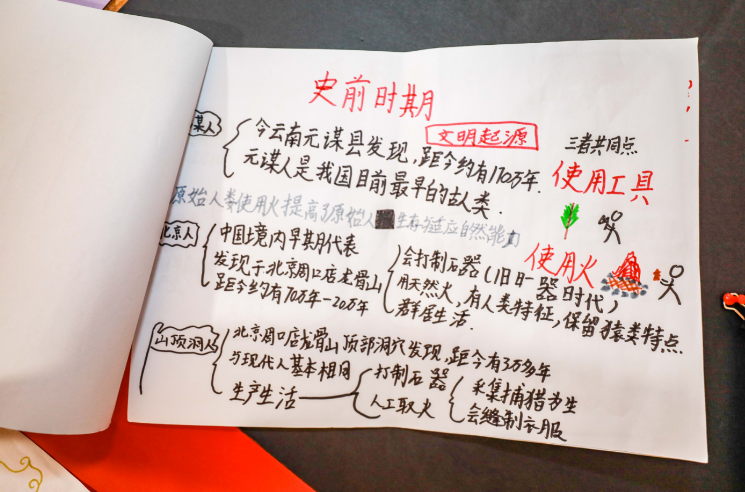 史前时期
文明起源
谋人
今云南元谋县发现,距今约有170万年.
元谋人是我国目前最早的古人类.
三者共同点
使用工具
使用火
原始人类使用火提高了原始人生存适应自然能力
北京人
中国境内早期代表
发现于北京周口店龙骨山
距今约有70万年-20万年
会打制石器(旧石器时代)
用天然火,有人类特征,保留猿类特点.
群居生活.
山顶洞人
北京周口店龙骨山顶部洞穴发现,距今有3万多年
与现代人基本相同
生产生活
打制石器
人工取火
采集捕猎为生
会缝制衣服